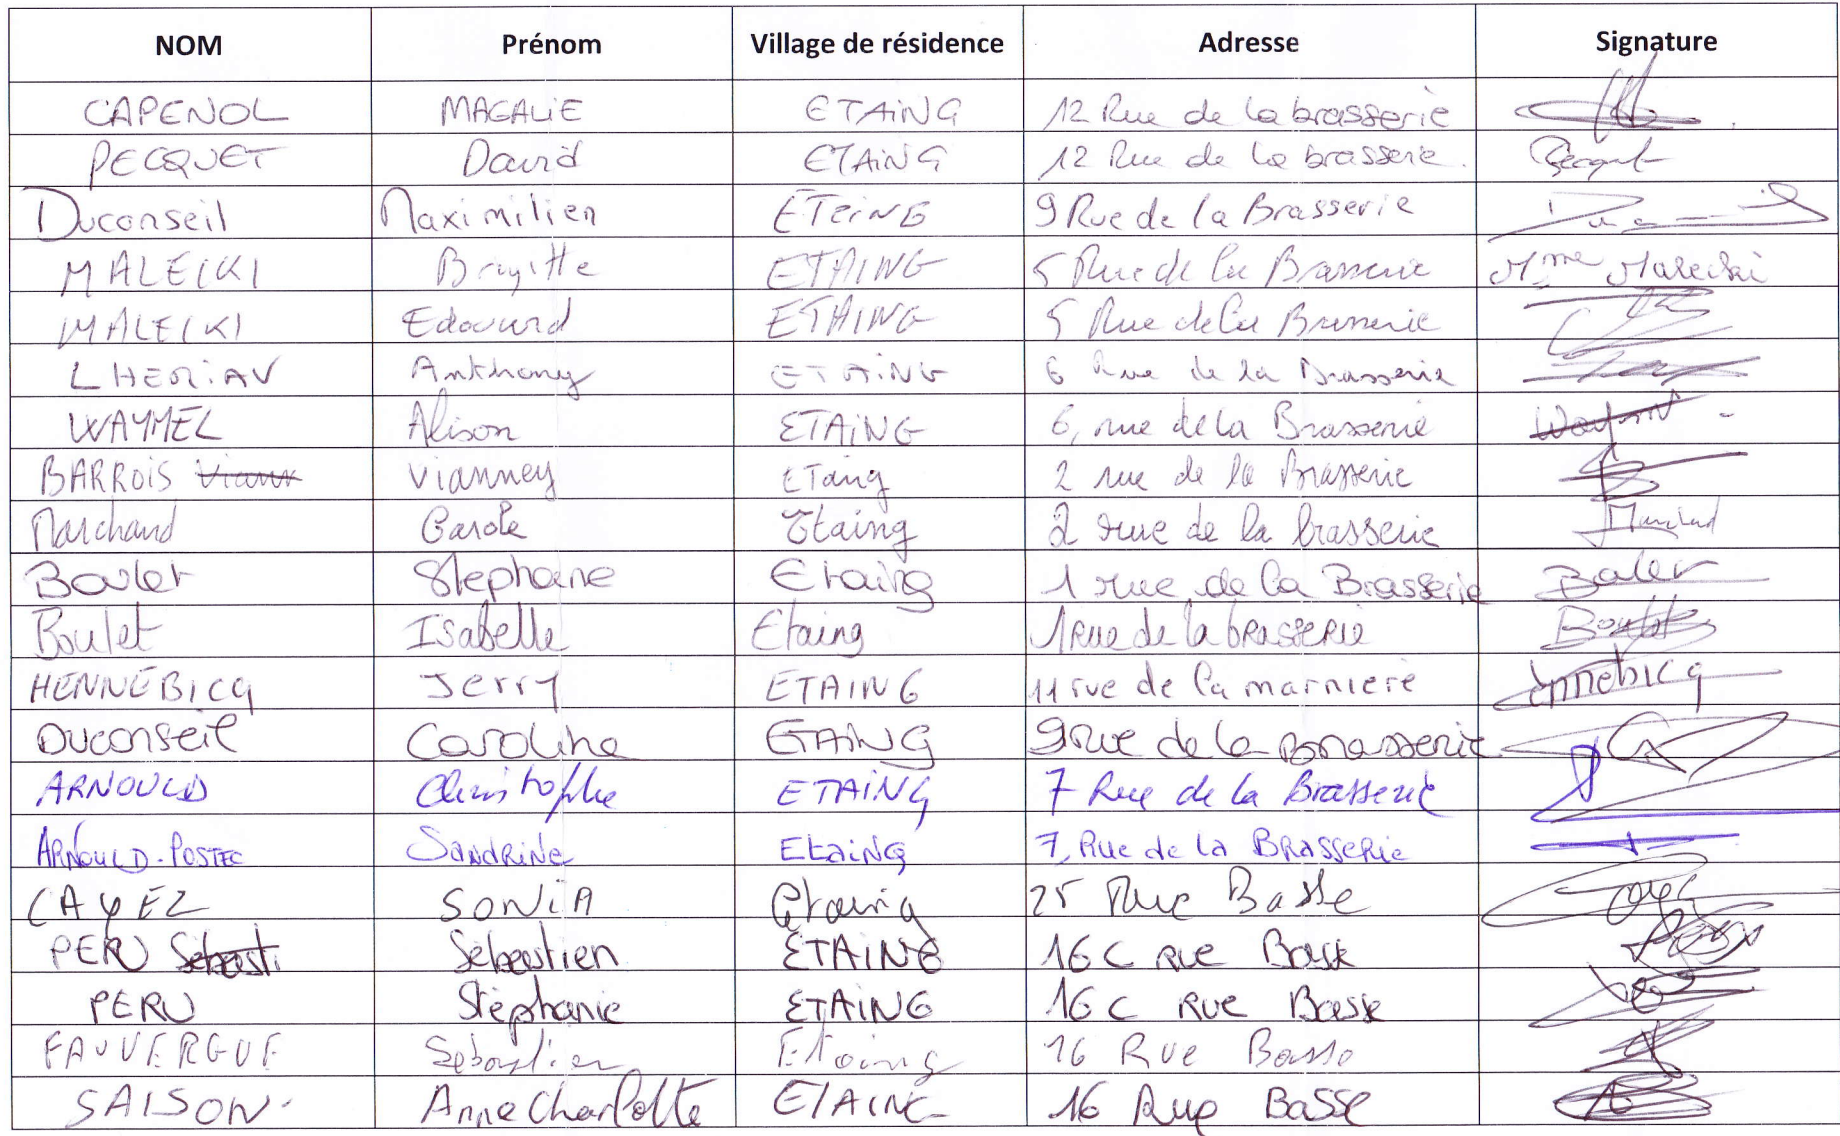 NOM Prénom Village de résidence Adresse Signature
CAPENOL MAGALIE ETAING 12 Rue de la brasserie
PECQUET David ETAING 12 Rue de la brasserie. Pecquet
Duconseil Maximilien ETAING 9 Rue de la Brasserie
MALECKI Brigitte ETAING 5 Rue de la Brasserie Mme Malecki
MALECKI Edouard ETAING 5 Rue de la Brasserie
LHERIAU Anthony ETAING 6 Rue de la Brasserie
WAYMEL Alison ETAING 6, rue de la Brasserie
BARROIS Vianney ETaing 2 rue de la Brasserie
Marchand Carole Etaing 2 rue de la brasserie
Boulet Stephane Etaing 1 rue de la Brasserie
Boulet Isabelle Etaing 1 rue de la brasserie
HENNEBICQ Jerry ETAING 11 rue de la marniere ennebicq
Duconseil Caroline ETAING 9 rue de la Brasserie
ARNOULD Christophe ETAING 7 Rue de la Brasserie
ARNOULD-POSTEC SANDRINE EtaiNG 7, Rue de la BRASSERIE
CAYEZ SONIA Etaing 25 Rue Basse
PERU Sébastien ETAING 16 C Rue Basse
PERU Stéphanie ETAING 16 C Rue Basse
FAUVERGUE Sebastien Etaing 16 Rue Basse
SAISON Anne Charlotte ETAING 16 Rue Basse